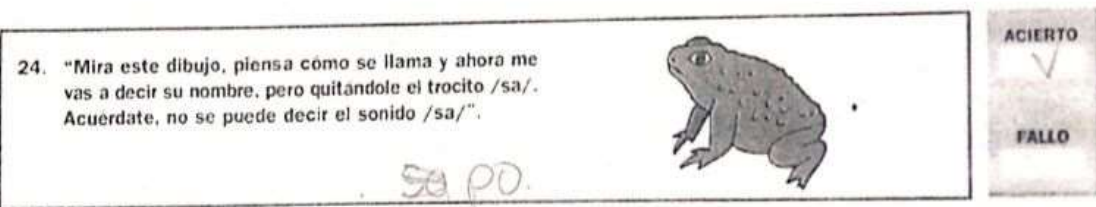 24. "Mira este dibujo, piensa cómo se llama y ahora me
vas a decir su nombre, pero quitándole el trocito /sa/.
Acuérdate, no se puede decir el sonido /sa/".
sa po.
ACIERTO
FALLO